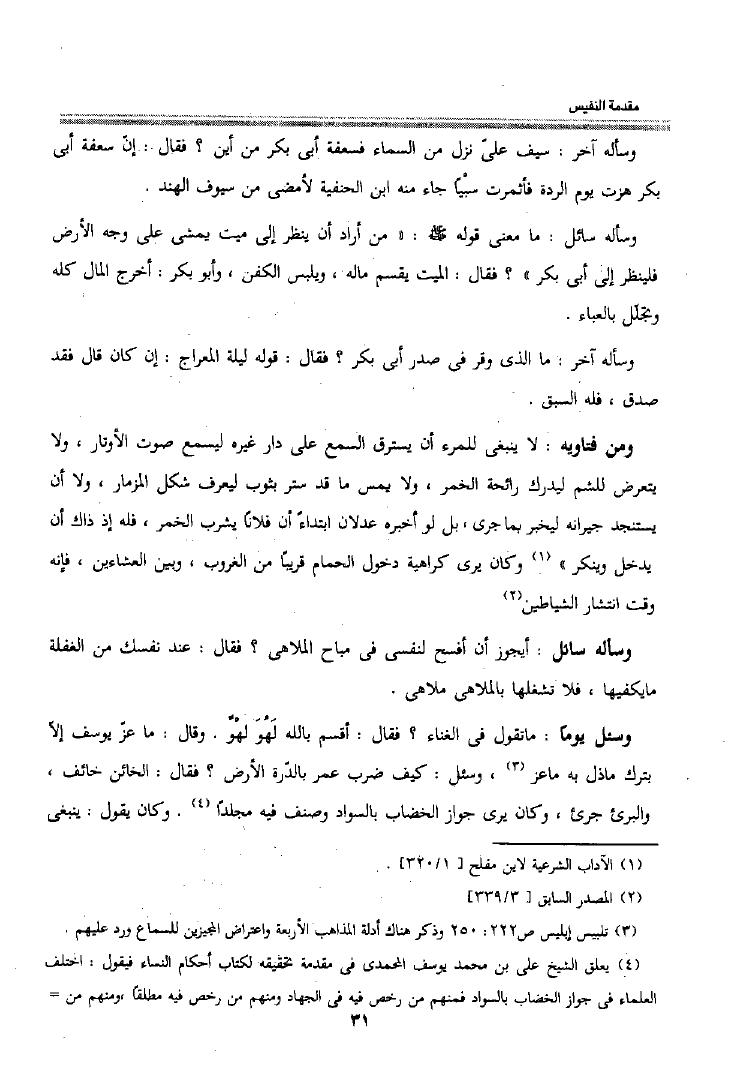 مقدمة النفيس
وسأله آخر : سيف علىّ نزل من السماء فسعفة أبى بكر من أين ؟ فقال : إنّ سعفة أبى
بكر هزت يوم الردة فأثمرت سبْيًا جاء منه ابن الحنفية لأمضى من سيوف الهند .
وسأله سائل : ما معنى قوله ﷺ : « من أراد أن ينظر إلى ميت يمشى على وجه الأرض
فلينظر إلى أبى بكر » ؟ فقال : الميت يقسم ماله ، ويلبس الكفن ، وأبو بكر : أخرج المال كله
وتجلّل بالعباء .
وسأله آخر : ما الذى وقر فى صدر أبى بكر ؟ فقال : قوله ليلة المعراج : إن كان قال فقد
صدق ، فله السبق .
ومن فتاويه : لا ينبغى للمرء أن يسترق السمع على دار غيره ليسمع صوت الأوتار ، ولا
يتعرض للشم ليدرك رائحة الخمر ، ولا يمس ما قد ستر بثوب ليعرف شكل المزمار ، ولا أن
يستنجد جيرانه ليخبر بماجرى ، بل لو أخبره عدلان ابتداءً أن فلانًا يشرب الخمر ، فله إذ ذاك أن
يدخل وينكر » (١) وكان يرى كراهية دخول الحمام قريبًا من الغروب ، وبين العشاءين ، فإنه
وقت انتشار الشياطين(٢)
وسأله سائل : أيجوز أن أفسح لنفسى فى مباح الملاهى ؟ فقال : عند نفسك من الغفلة
مايكفيها ، فلا تشغلها بالملاهى ملاهى .
وسئل يومًا : ماتقول فى الغناء ؟ فقال : أقسم بالله لَهُوَ لَهْوٌ . وقال : ما عزّ يوسف إلاّ
بترك ماذل به ماعز (٣) ، وسئل : كيف ضرب عمر بالدّرة الأرض ؟ فقال : الخائن خائف ،
والبرئ جرئ ، وكان يرى جواز الخضاب بالسواد وصنف فيه مجلدًا (٤) . وكان يقول : ينبغى
(١) الآداب الشرعية لابن مفلح [ ٣٢٠/١] .
(٢) المصدر السابق [ ٣٣٩/٣]
(٣) تلبيس إبليس ص٢٢٢: ٢٥٠ وذكر هناك أدلة المذاهب الأربعة واعتراض المجيزين للسماع ورد عليهم .
(٤) يعلق الشيخ على بن محمد يوسف المحمدى فى مقدمة تحقيقه لكتاب أحكام النساء فيقول : اختلف
العلماء فى جواز الخضاب بالسواد فمنهم من رخص فيه فى الجهاد ومنهم من رخص فيه مطلقًا ،ومنهم من =
٣١